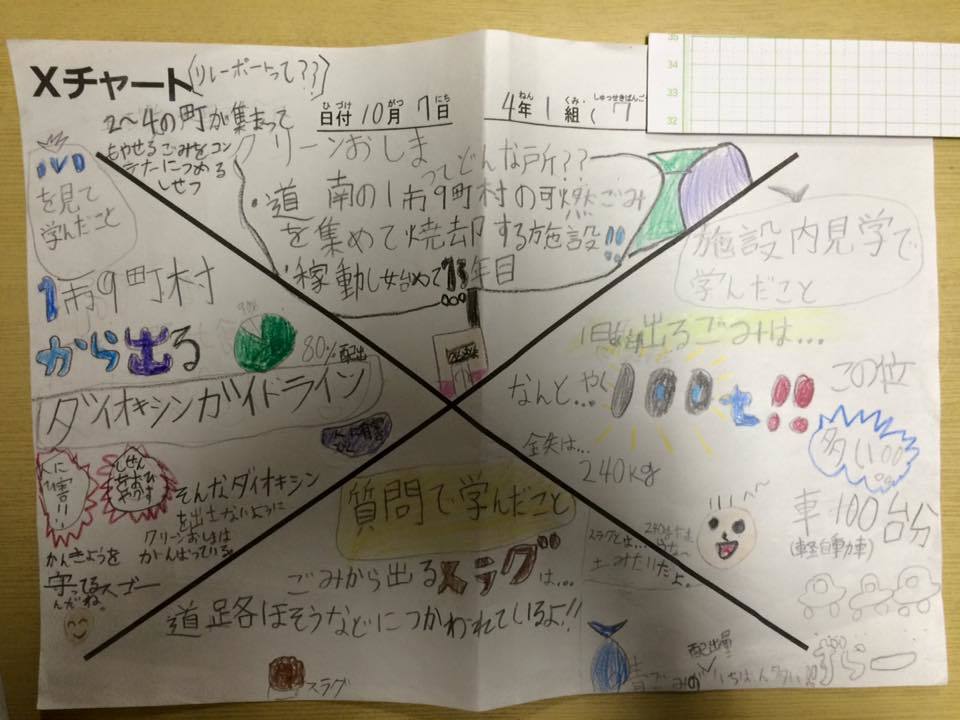 Xチャート(リレーポートって??)
ひづけ がつ にち
日付10月7日
ねん くみ しゅっせきばんご
4年1組(7
2〜4の町が集まって
もやせるごみをコン
テナにつめる
しせつ
クリーンおしま
ってどんな所??
・道南の1市9町村の可燃ごみ
を集めて焼却する施設!!
・稼動し始めて13年目
を見て
学んだこと
1市9町村
から出る
80%配出
ダイオキシンガイドライン
人に
害!!
しぜん
そんなダイオキシン
を出さないように
クリーンおしまは
がんばっている。
かんきょうを
守ってるスゴー
んだね。
施設内見学で
学んだこと
出るごみは…
なんと…やく100t!!
この位
多い
車100台分
(軽自動車)
金失は…
240kg
スラグとは…
土みたいだよ。
ずらー
質問で学んだこと
ごみから出るスラグは…
道路ほそうなどにつかわれているよ!!
スラグ
配出量
青ごみの いちばん多い
35
34
33
32